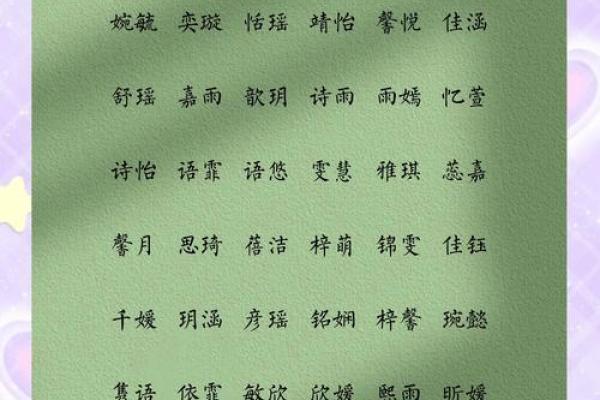 婉毓 奕璇 恬瑶 靖怡 馨悦 佳涵
舒瑶 嘉雨 歆玥 诗雨 雨嫣 忆萱
诗怡 语霏 语悠 雯慧 雅琪 蕊嘉
馨月 思琦 蓓洁 梓萌 锦雯 佳钰
千媛 玥涵 彦瑶 铭娴 梓馨 琬懿
隽语 依霏 敏欣 欣媛 熙雨 昕媛